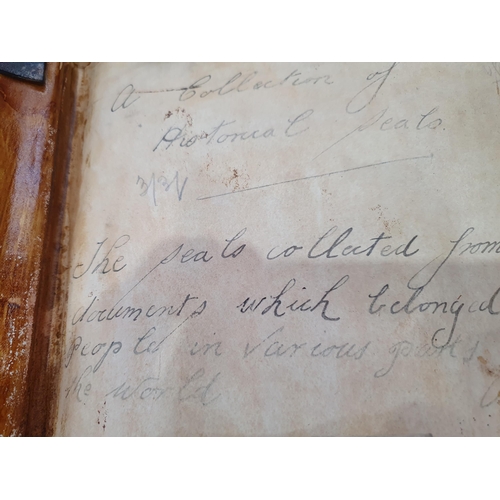 A Collection of
Historical Seals.
3/3/
The seals collected from
documents which belonged
People in various parts
the World